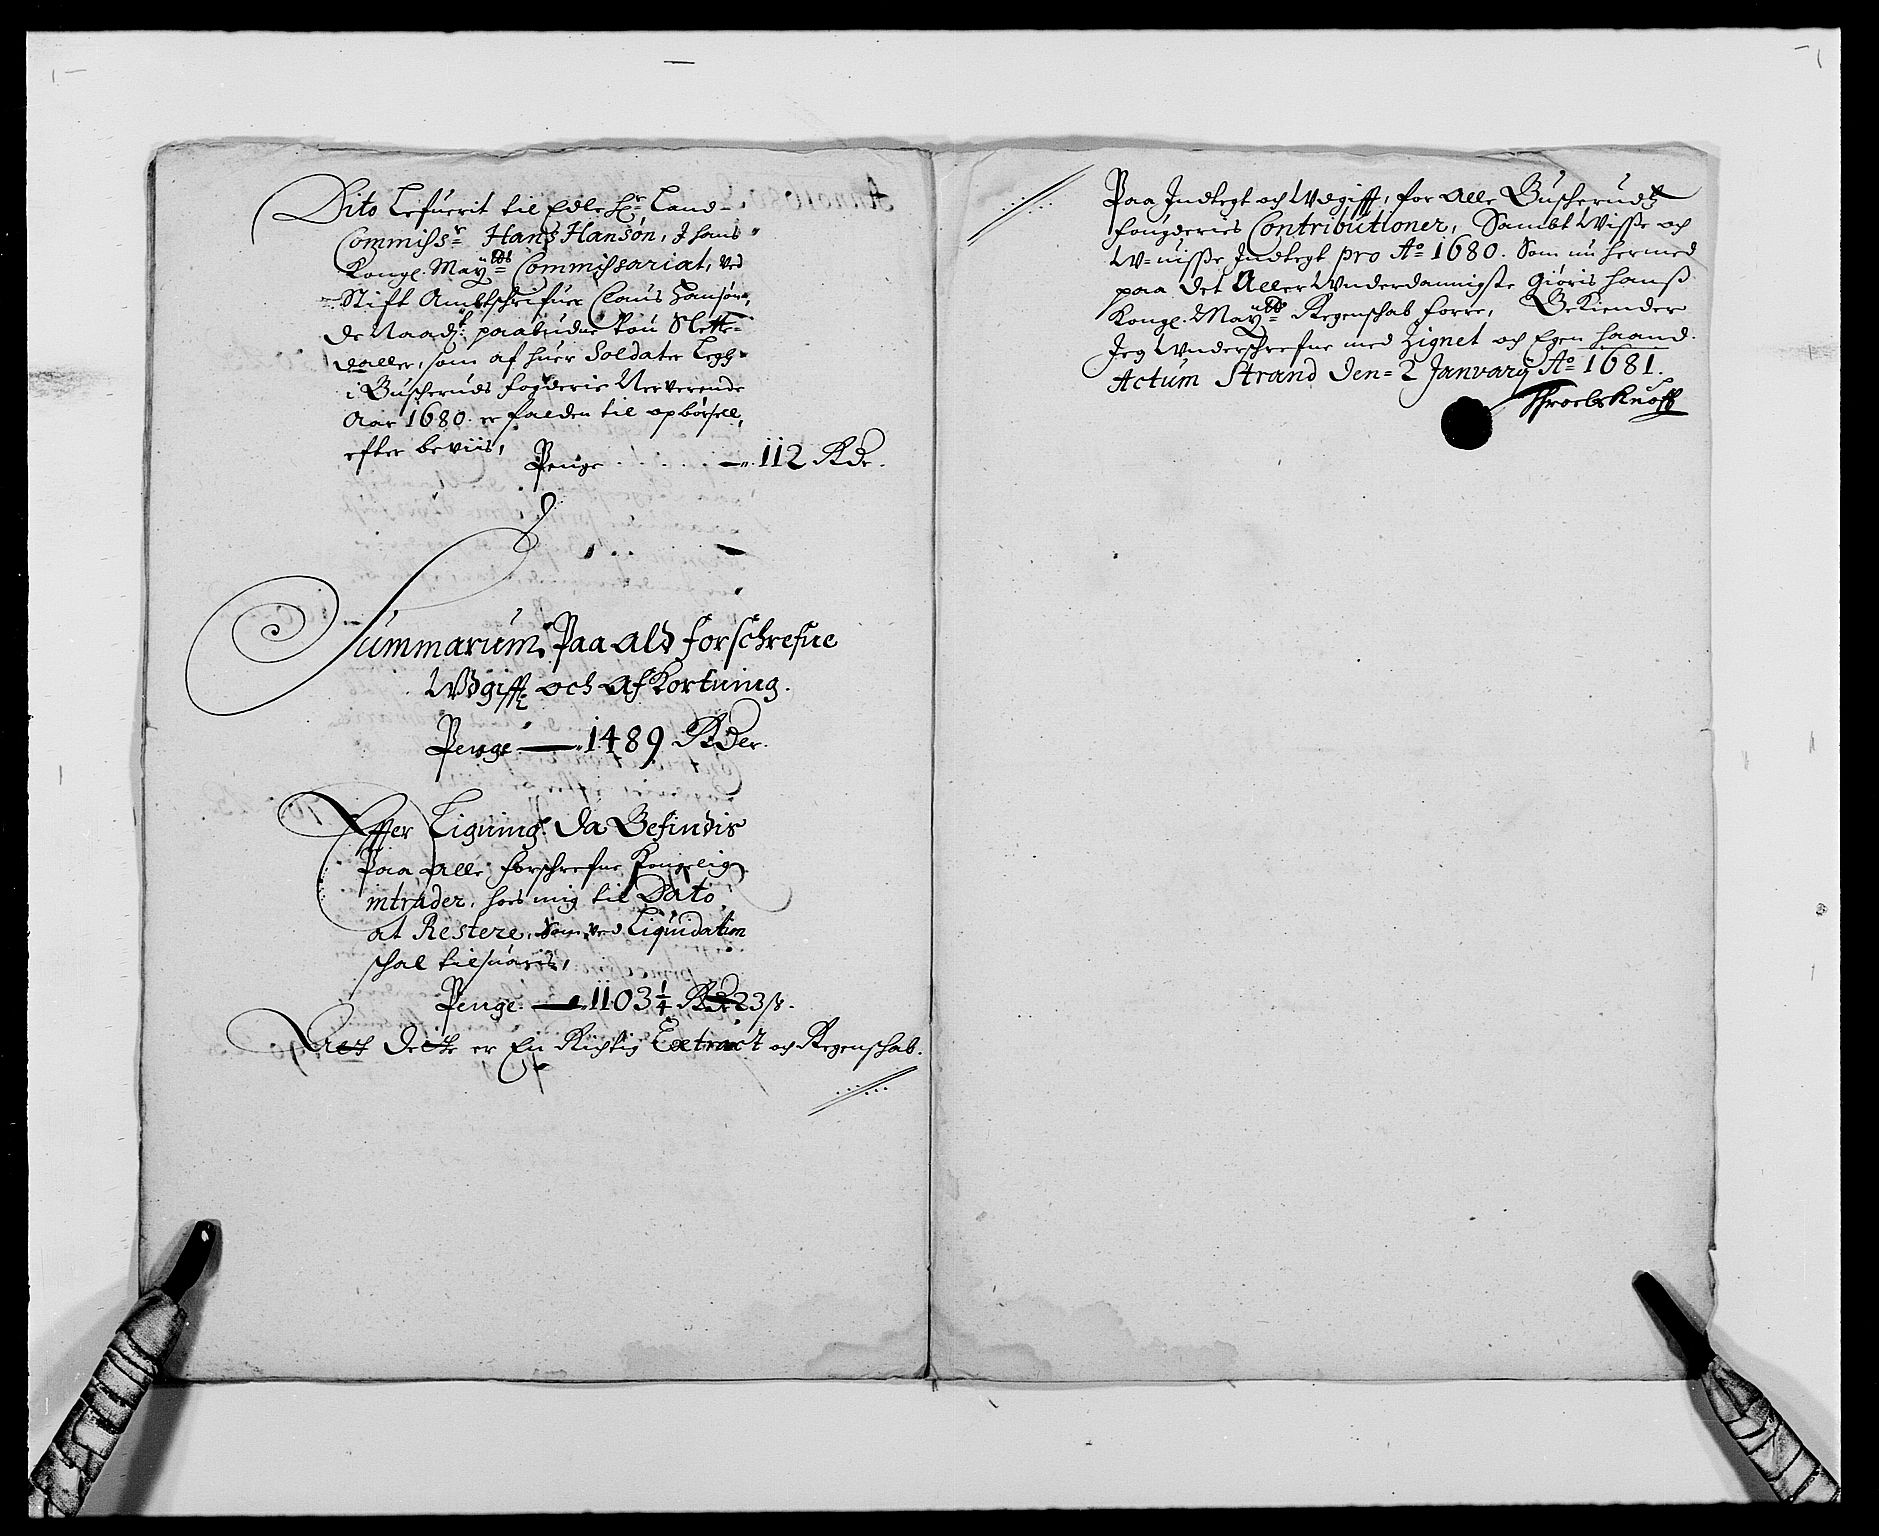 Dito Lefuerit til Edle Hr: Land-
Commisr: Hans Hanson, J hans
Kongl. Mayts: Commissariat, ved
Stift Ambtschrifuer Claus Hansøn,
de Naadst: paabudne tou Slette-
daller, som af huer Soldater Legh
i Buscheruds fogderie Nerverende
Aar 1680. er falden til opbørsell,
efter beviis,
Penge - 112 Rdr.
Summarum, Paa ald forschrefne
Wdgifft och afkortning.
Penge - 1489 Rder.
Effter Ligning, da Befindis
Paa alle forschrefne Kongelig
intrader, hos mig til Dato
at Restere, Som ved Liquidation
schal tilsuaris,
Penge - 1103 1/4 Rdr 23 ß.
At dette er En Rigtig Extract och Regenschab.
Paa Indtegt och Wdgifft, for alle Buscheruds
fougderies Contributioner, Sambt Wisse och
W=uisse Indtegt pro Ao 1680. Som nu hermed
paa det AllerWnderdannigste Giøris hans
Kongl. Mayts: Regenschab forre, Bekiender
Jeg Wnderschrefne med Zignet och Egen haand.
Actum Strand den= 2 January Ao 1681.
Throels Knoff